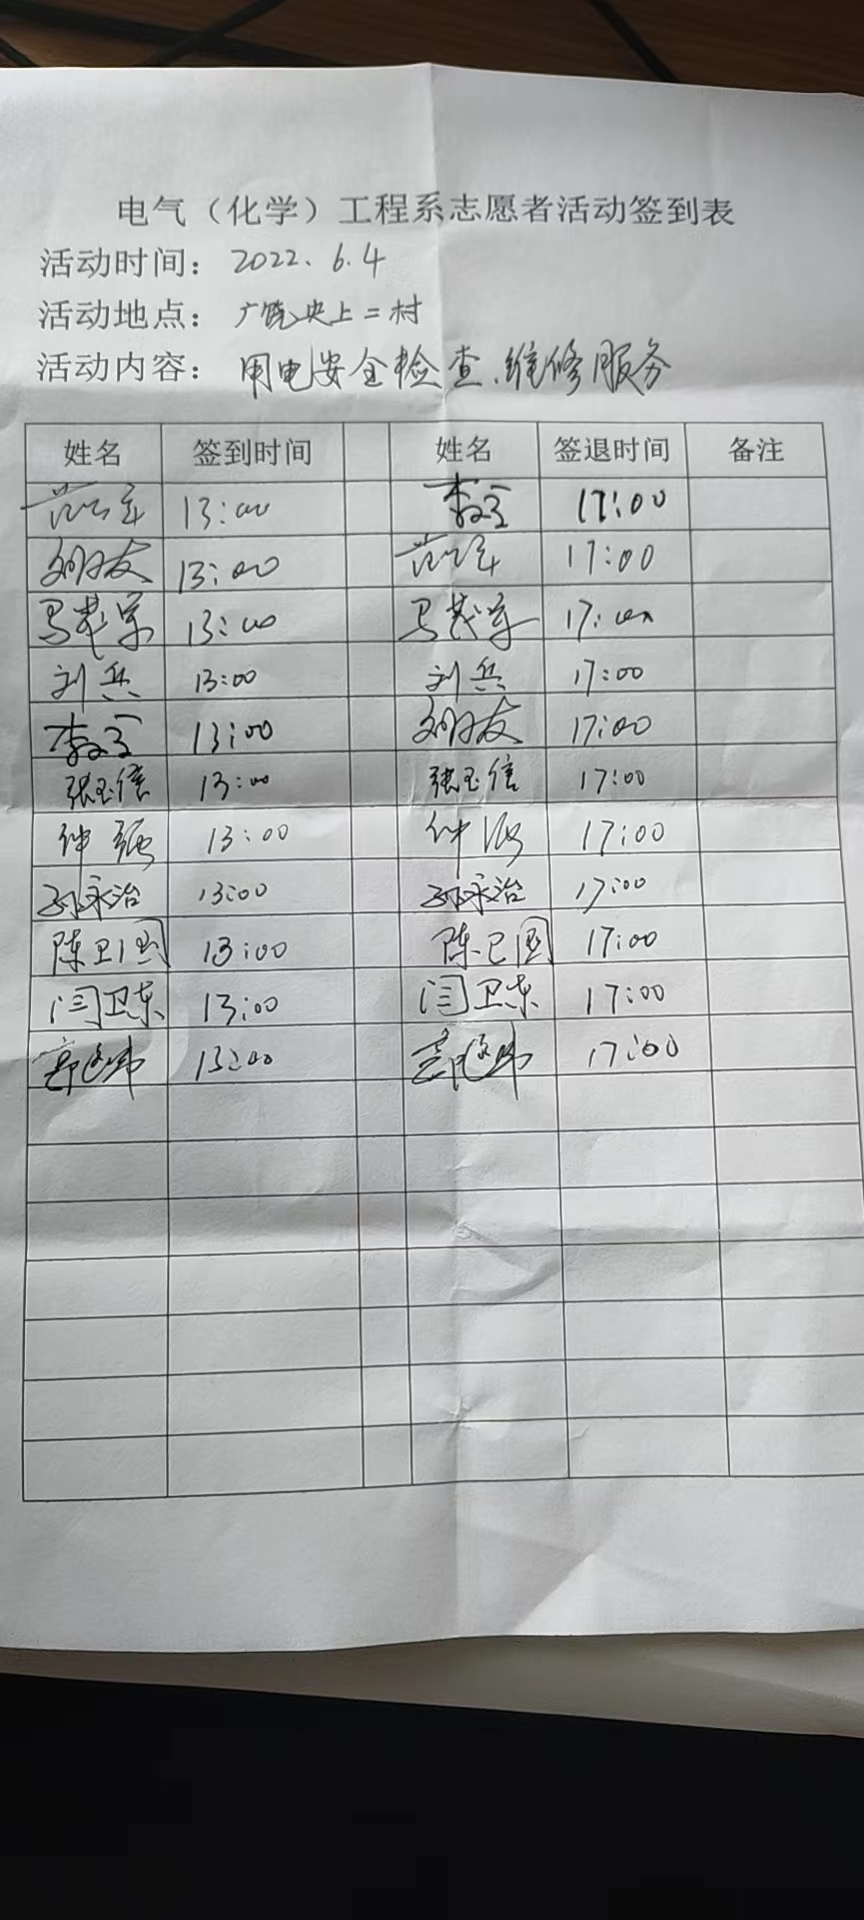 电气（化学）工程系志愿者活动签到表
活动时间：2022、6.4
活动地点：广饶史上二村
活动内容：用电安全检查、维修服务
姓名 签到时间 姓名 签退时间 备注
13:00 17:00
13:00 17:00
马茂军 13:00 马茂军 17:00
刘兵 13:00 刘兵 17:00
13:00 17:00
张玉信 13:00 张玉信 17:00
钟强 13:00 钟强 17:00
孙永治 13:00 孙永治 17:00
陈卫国 13:00 陈卫国 17:00
闫卫东 13:00 闫卫东 17:00
13:00 17:00